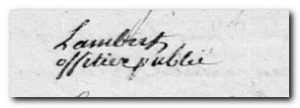 Lambert
offitier publié